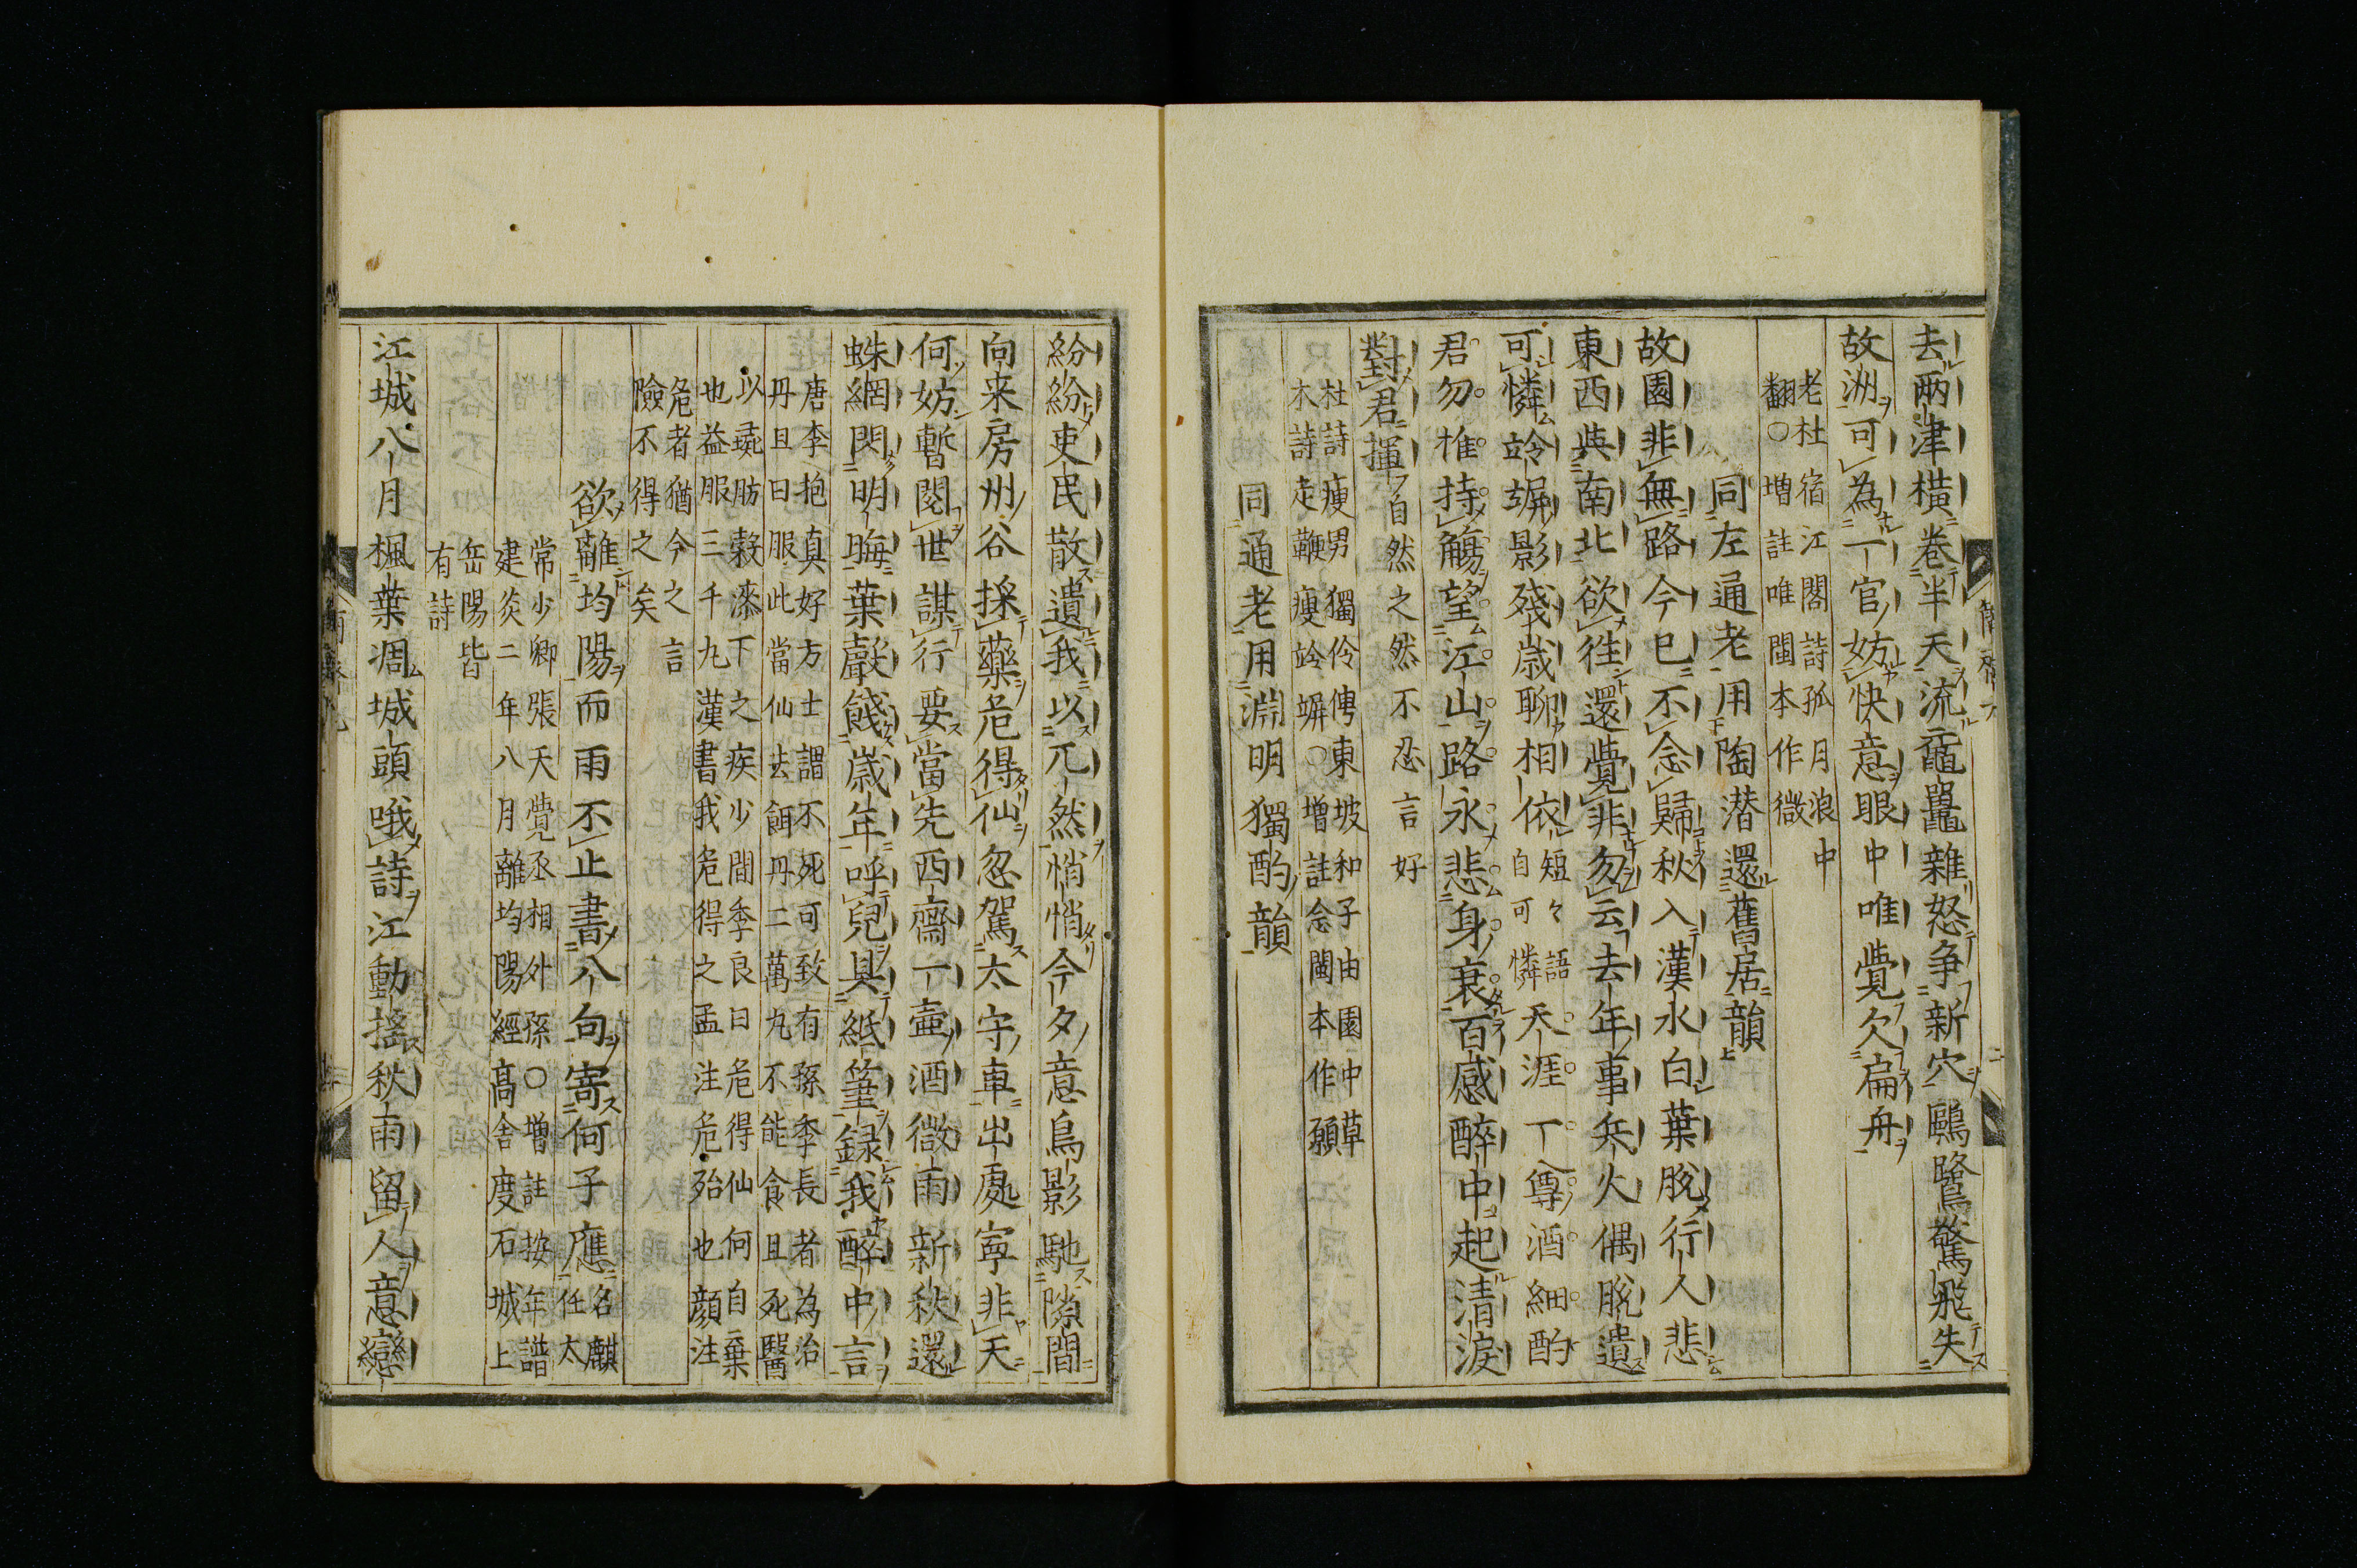 去兩津橫卷半天流黿鼉雜怒争新穴鷗鷺驚飛失
故洲可為一官妨快意眼中唯覺欠扁舟
老杜宿江閣詩孤月浪中
翻○增註唯閩本作微
同左通老用陶潜還舊居韻
故園非無路今已不念歸秋入漢水白葉脫行人悲
東西與南北欲往還覺非勿云去年事兵火偶脫遺
可憐竛竮影殘歳聊相依
短々語
自可憐
天涯一尊酒細酌
君勿推持觴望江山路永悲身衰百感醉中起清淚
對君揮
自然之然不忍言好
杜詩瘦男獨伶俜東坡和子由園中草
木詩走鞭瘦竛竮○增註念閩本作顧
同通老用淵明獨酌韻
紛紛吏民散遺我以兀然悄悄今夕意鳥影馳隙間
向来房州谷採藥危得仙忽駕太守車出處寧非天
何妨暫閱世謀行要當先西齋一壺酒微雨新秋還
蛛網閃明晦葉聲餞歳年呼兒具紙筆録我醉中言
唐李抱真好方士謂不死可致有孫季長者為治
丹且曰服此當仙去餌丹二萬丸不能食且死醫
以彘肪穀漆下之疾少間季良曰危得仙何自棄
也益服三千丸漢書我危得之孟注危殆也顔注
危者猶今之言
險不得之矣
欲離均陽而雨不止書八句寄何子應
名麒
任太
常少卿張天覺丞相外孫○增註按年譜
建炎二年八月離均陽經髙舎度石城上
岳陽皆
有詩
江城八月楓葉凋城頭哦詩江動搖秋雨留人意戀